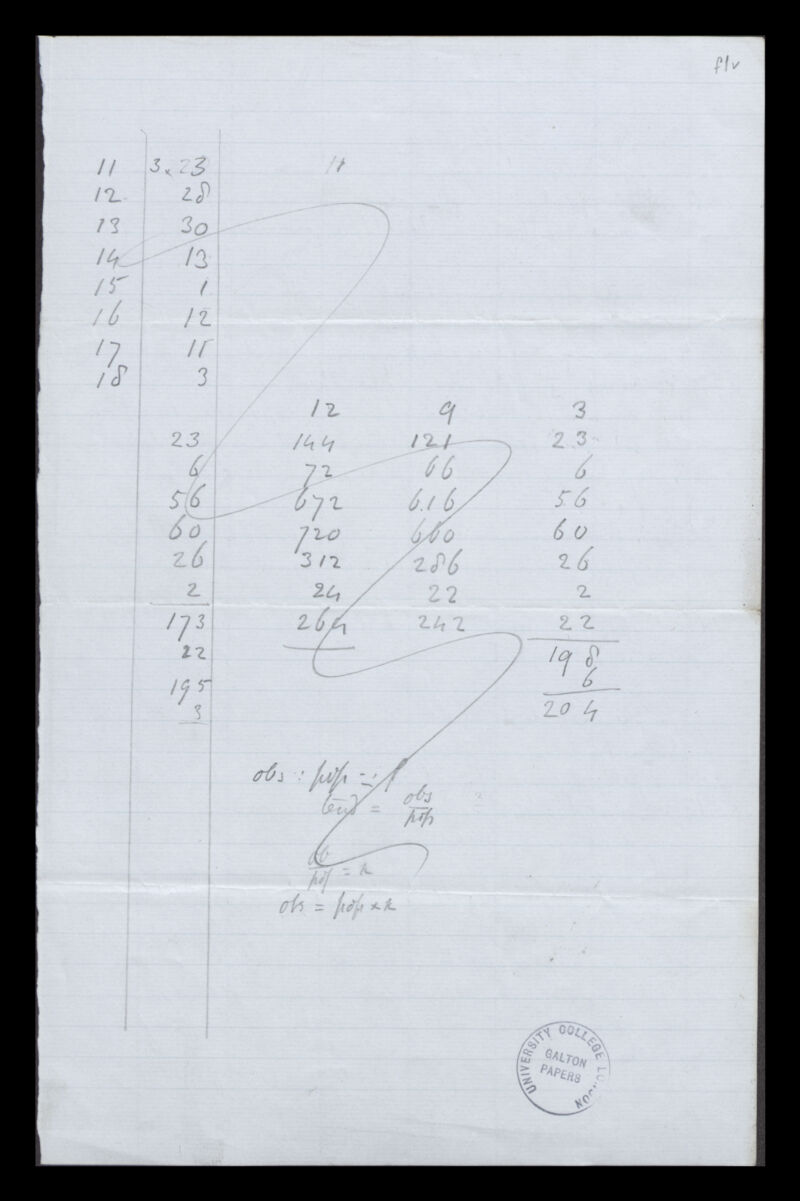 f1v
11 3 x 23 11
12 28
13 30
14 13
15 1
16 12
17 11
18 3
12 9 3
23 144 121 23
6 72 66 6
56 672 616 56
60 720 660 60
26 312 286 26
2 24 22 2
173 264 242 22
22 198
195 6
3 204
obs : pop =
tend = obs
pop
ob
pop = r
obs = pop x r
UNIVERSITY COLLEGE LONDON
GALTON
PAPERS